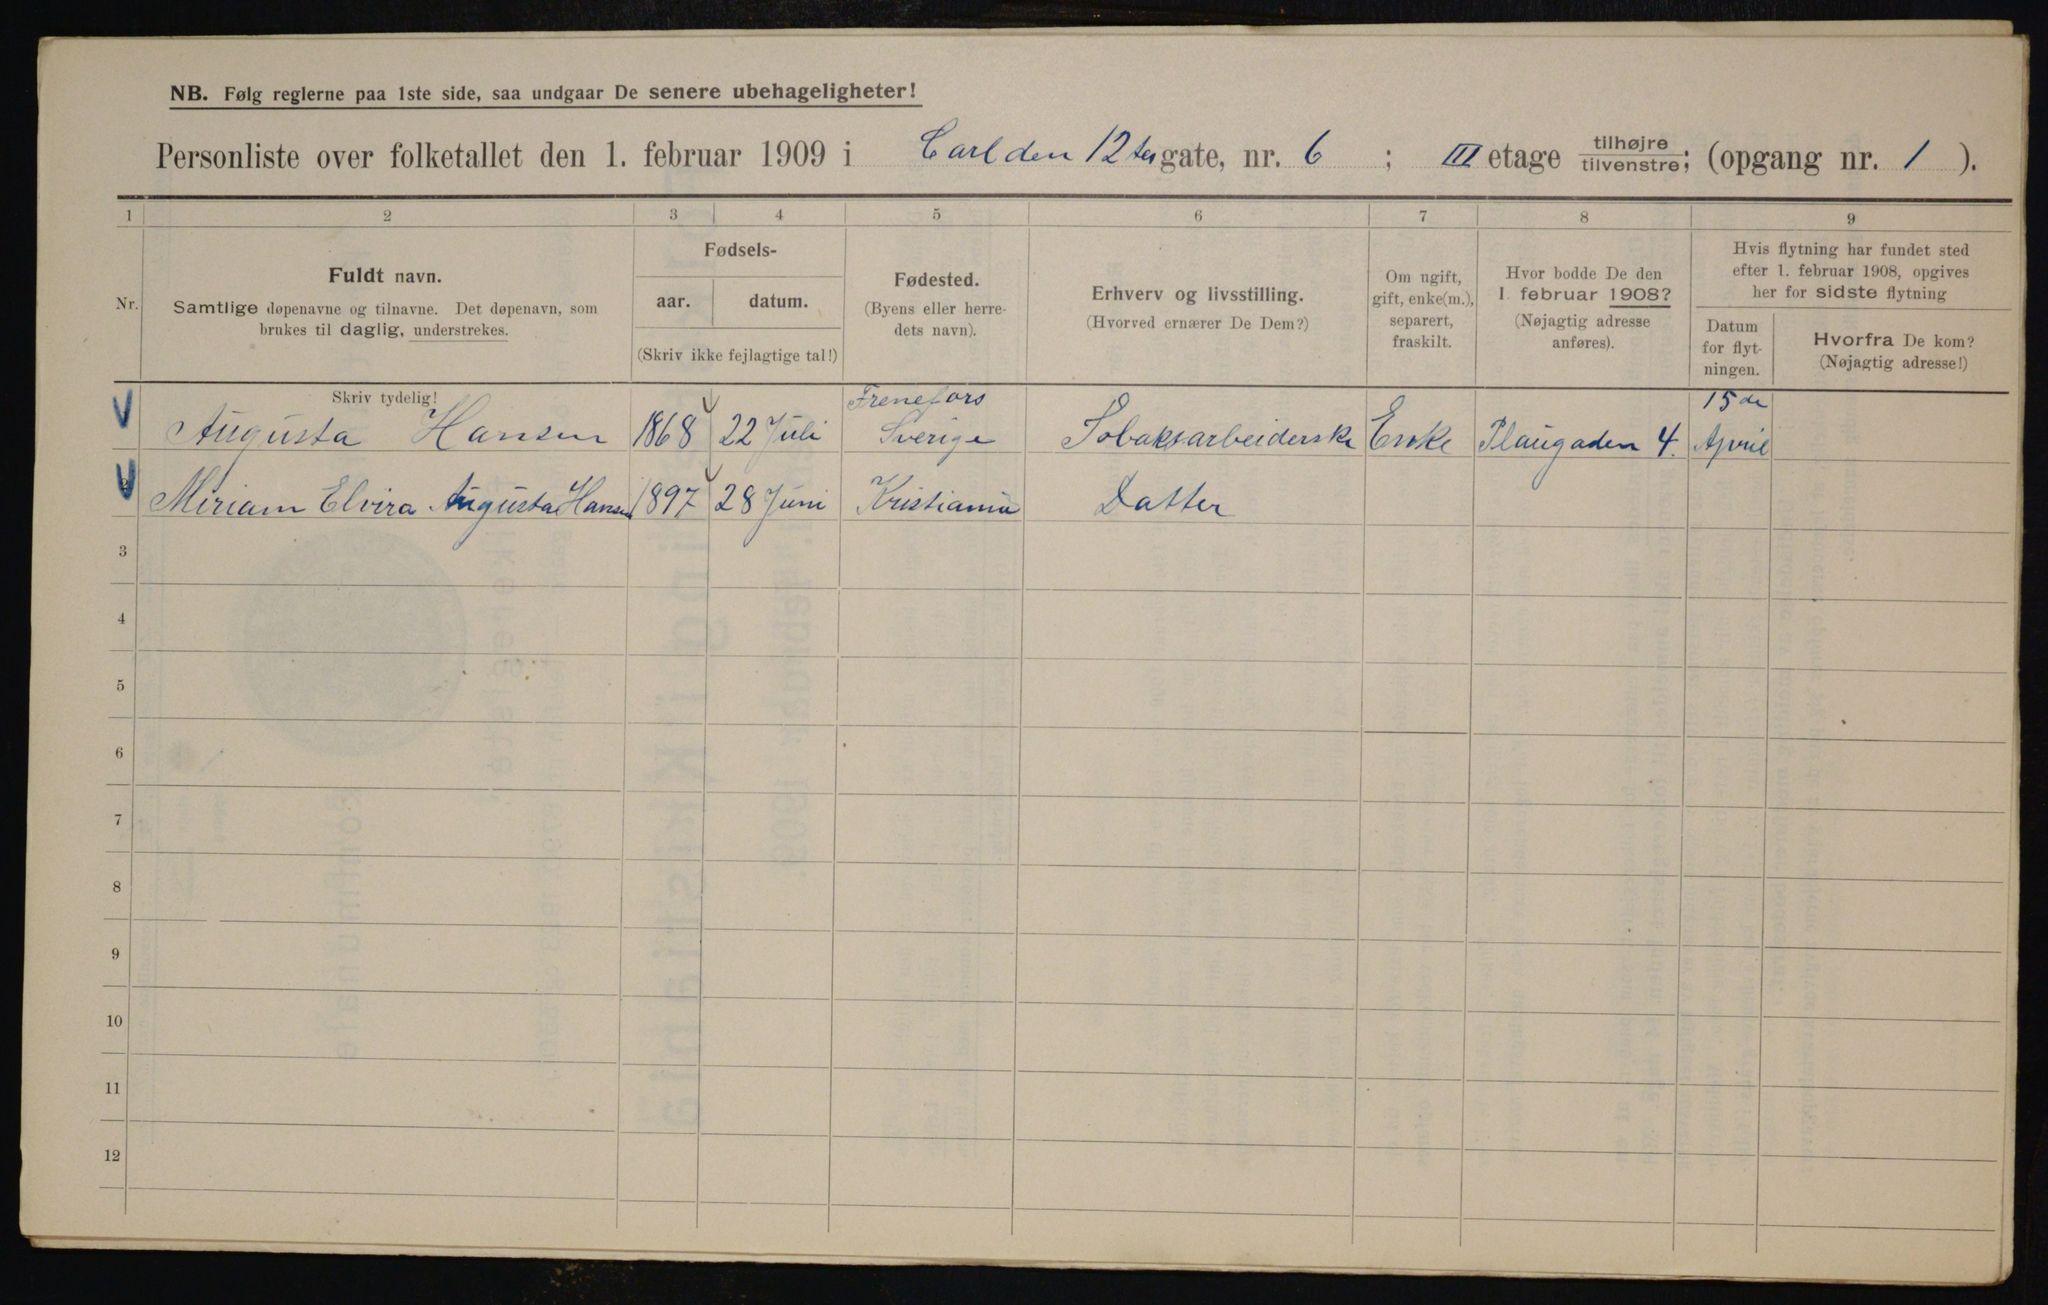 NB. Følg reglerne paa 1ste side, saa undgaar De senere ubehageligheter!
Personliste over folketallet den 1. februar 1909 i Carl den 12tes gate, nr. 6 ; III etage tilhøjre tilvenstre; (opgang nr. 1 ).
1 2 3 4 5 6 7 8 9
Nr.
Fuldt navn.
Samtlige døpenavne og tilnavne. Det døpenavn, som
brukes til daglig, understrekes.
Fødsels-
aar. datum.
(Skriv ikke fejlagtige tal!)
Fødested.
(Byens eller herre-
dets navn).
Erhverv og livsstilling.
(Hvorved ernærer De Dem?)
Om ugift,
gift, enke(m.),
separert,
fraskilt.
Hvor bodde De den
1. februar 1908?
(Nøjagtig adresse
anføres).
Hvis flytning har fundet sted
efter 1. februar 1908, opgives
her for sidste flytning
Datum
for flyt-
ningen.
Hvorfra De kom?
(Nøjagtig adresse!)
Skriv tydelig!
Augusta Hansen 1868 22 Juli Frenefors Sverige Tobaksarbeiderske Enke Plaugaden 4. 15de April
2 Miriam Elvira Augusta Hansen 1897 28 Juni Kristiania Datter
3
4
5
6
7
8
9
10
11
12